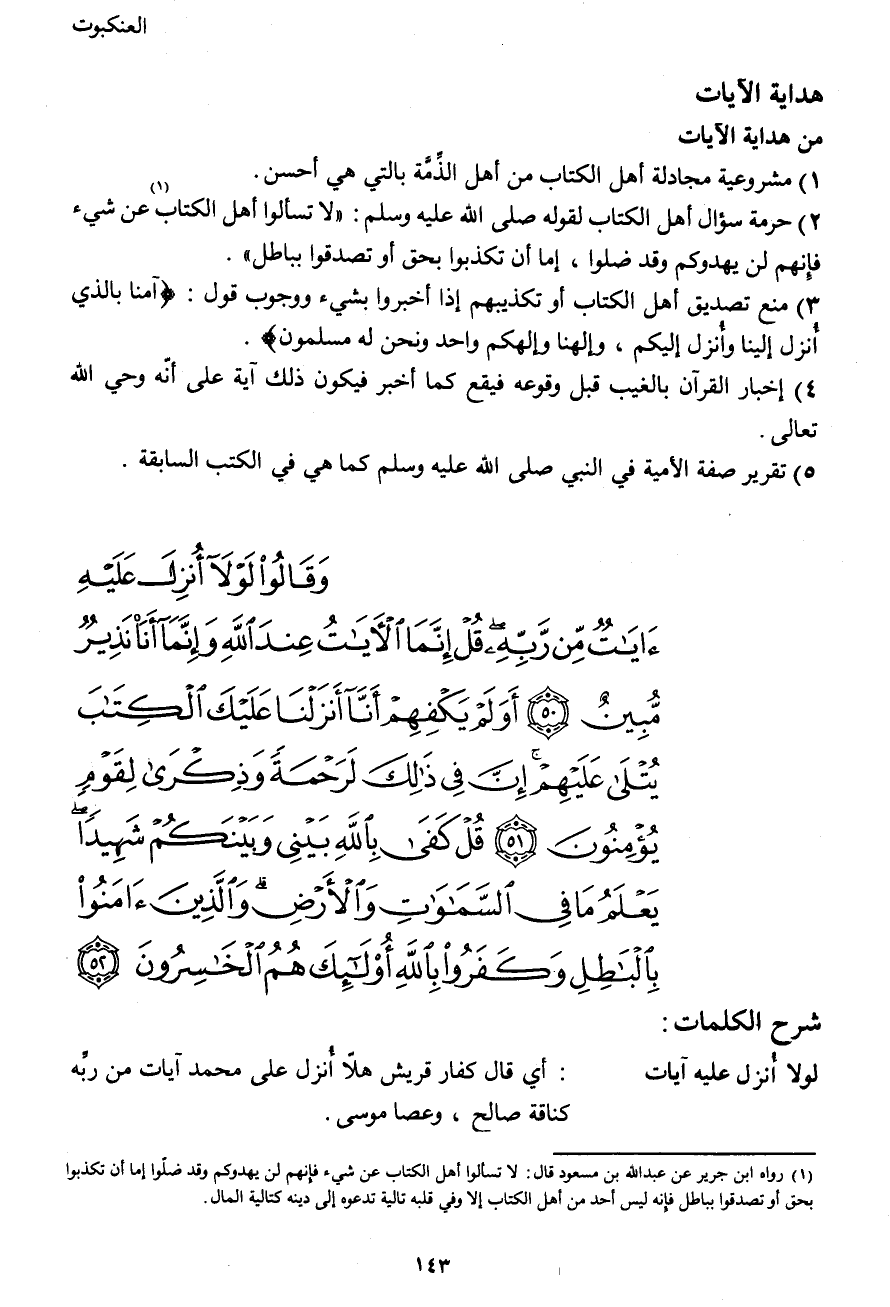 العنكبوت
هداية الآيات
من هداية الآيات
١) مشروعية مجادلة أهل الكتاب من أهل الذِّمَّة بالتي هي أحسن.
٢) حرمة سؤال أهل الكتاب لقوله صلى الله عليه وسلم: «لا تسألوا أهل الكتاب(١) عن شيء
فإنهم لن يهدوكم وقد ضلوا ، إما أن تكذبوا بحق أو تصدقوا بباطل» .
٣) منع تصديق أهل الكتاب أو تكذيبهم إذا أخبروا بشيء ووجوب قول : ﴿آمنا بالذي
أُنزل إلينا وأُنزل إليكم ، وإلهنا وإلهكم واحد ونحن له مسلمون﴾ .
٤) إخبار القرآن بالغيب قبل وقوعه فيقع كما أخبر فيكون ذلك آية على أنّه وحي الله
تعالى.
٥) تقرير صفة الأمية في النبي صلى الله عليه وسلم كما هي في الكتب السابقة .
وَقَالُوا۟ لَوْلَآ أُنزِلَ عَلَيْهِ
ءَايَـٰتٌ مِّن رَّبِّهِۦ ۖ قُلْ إِنَّمَا ٱلْأَيَـٰتُ عِندَ ٱللَّهِ وَإِنَّمَآ أَنَا۠ نَذِيرٌ
مُّبِينٌ ٥٠ أَوَلَمْ يَكْفِهِمْ أَنَّآ أَنزَلْنَا عَلَيْكَ ٱلْكِتَـٰبَ
يُتْلَىٰ عَلَيْهِمْ ۚ إِنَّ فِى ذَٰلِكَ لَرَحْمَةً وَذِكْرَىٰ لِقَوْمٍ
يُؤْمِنُونَ ٥١ قُلْ كَفَىٰ بِٱللَّهِ بَيْنِى وَبَيْنَكُمْ شَهِيدًا ۖ
يَعْلَمُ مَا فِى ٱلسَّمَـٰوَٰتِ وَٱلْأَرْضِ ۗ وَٱلَّذِينَ ءَامَنُوا۟
بِٱلْبَـٰطِلِ وَكَفَرُوا۟ بِٱللَّهِ أُو۟لَـٰٓئِكَ هُمُ ٱلْخَـٰسِرُونَ ٥٢
شرح الكلمات:
لولا أُنزل عليه آيات : أي قال كفار قريش هلّا أُنزل على محمد آيات من ربِّه
كناقة صالح ، وعصا موسى.
(١) رواه ابن جرير عن عبدالله بن مسعود قال: لا تسألوا أهل الكتاب عن شيء فإنهم لن يهدوكم وقد ضلّوا إما أن تكذبوا
بحق أو تصدقوا بباطل فإنه ليس أحد من أهل الكتاب إلا وفي قلبه تالية تدعوه إلى دينه كتالية المال.
١٤٣